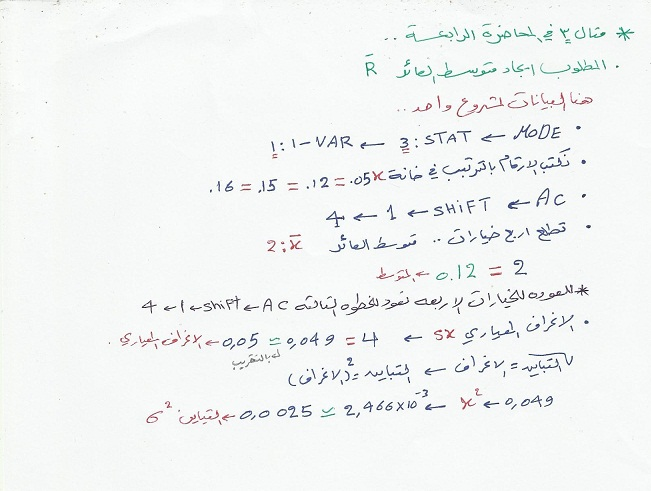 * مثال ٣ في المحاضرة الرابعة ..
. المطلوب ايجاد متوسط العائد R̄
هنا البيانات لمشروع واحد ..
• MODE ← 3:STAT ← 1:1-VAR
• نكتب الارقام بالترتيب في خانة x .05 = .12 = .15 = .16
• AC ← SHIFT ← 1 ← 4
• تطلع اربع خيارات .. متوسط العائد 2:x̄
2 = 0.12 ← المتوسط
* للعوده للخيارات الاربعه نعود للخطوه الثالثه AC ← shift ← 1 ← 4
• الانحراف المعياري sx ← 4 = 0,049 ≃ 0,05 ← الانحراف المعياري .
بالتقريب
√التباين = الانحراف ← التباين = (الانحراف)²
0,049 ← x² ← 2,466x10⁻³ ≃ 0,0025 ← التباين σ²